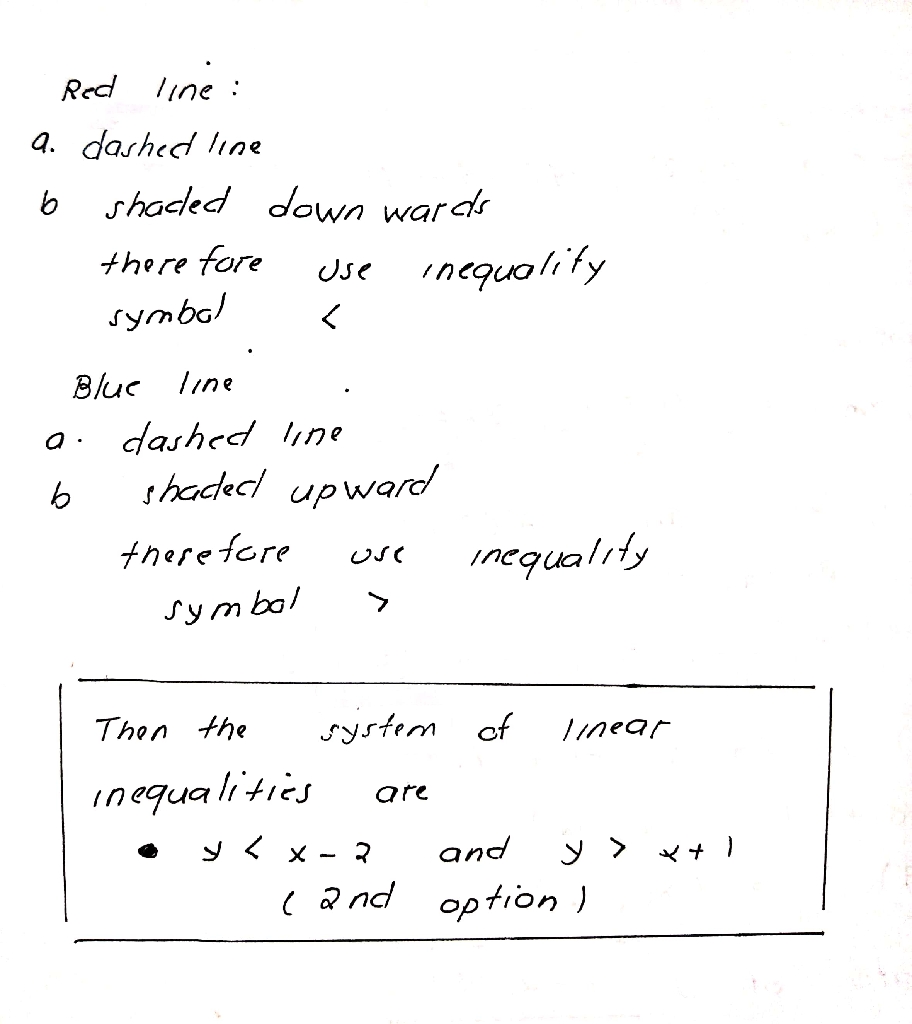 Red line :
a. dashed line
b shaded down wards
therefore use inequality
symbol <
Blue line
a. dashed line
b shaded upward
therefore use inequality
symbol >
Then the system of linear
inequalities are
• y < x - 2 and y > x + 1
( 2nd option )